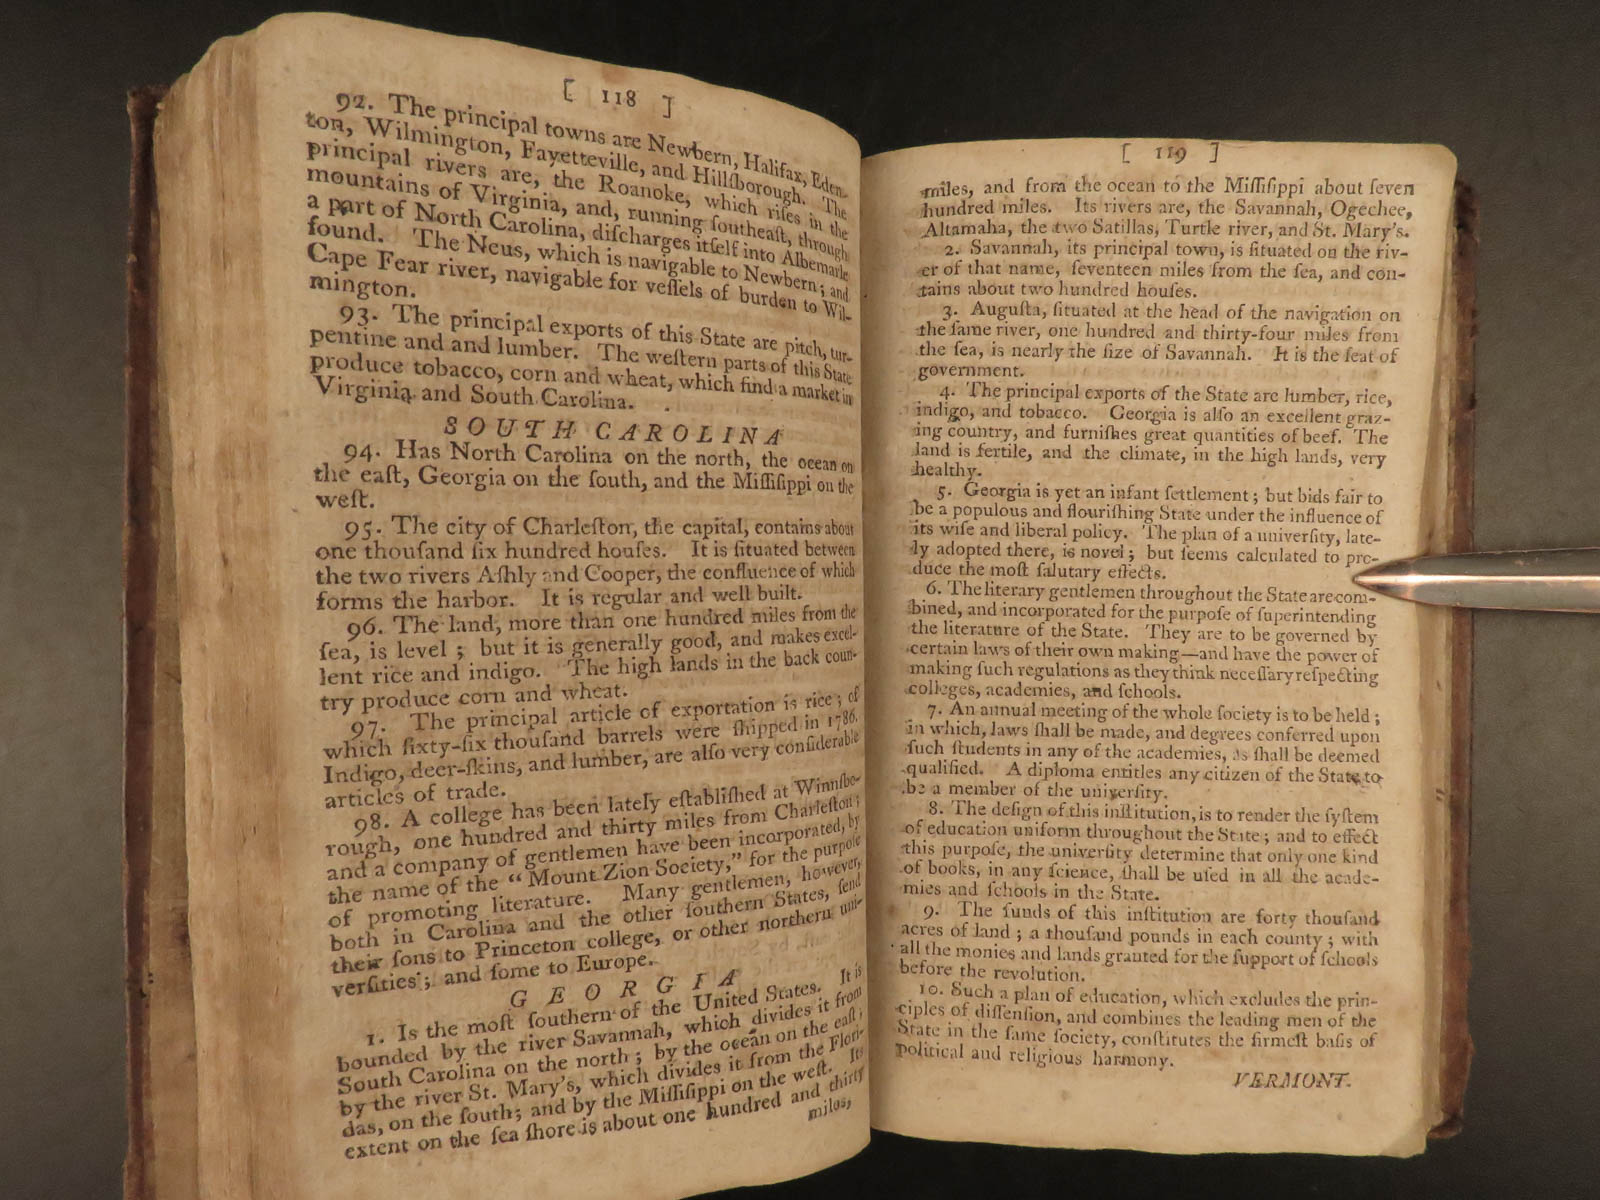 [ 118 ]
92. The principal towns are Newbern, Halifax, Eden-
ton, Wilmington, Fayetteville, and Hillſborough. The
principal rivers are, the Roanoke, which riſes in the
mountains of Virginia, and, running ſoutheaſt, through
a part of North Carolina, diſcharges itſelf into Albemarle
found. The Neus, which is navigable to Newbern; and
Cape Fear river, navigable for veſſels of burden to Wil-
mington.
93. The principal exports of this State are pitch, tur-
pentine and and lumber. The weſtern parts of this State
produce tobacco, corn and wheat, which find a market in
Virginia and South Carolina.
SOUTH CAROLINA
94. Has North Carolina on the north, the ocean on
the eaſt, Georgia on the ſouth, and the Miſſiſippi on the
weſt.
95. The city of Charleſton, the capital, contains about
one thouſand ſix hundred houſes. It is ſituated between
the two rivers Aſhly and Cooper, the confluence of which
forms the harbor. It is regular and well built.
96. The land, more than one hundred miles from the
ſea, is level; but it is generally good, and makes excel-
lent rice and indigo. The high lands in the back coun-
try produce corn and wheat.
97. The principal article of exportation is rice; of
which ſixty-ſix thouſand barrels were ſhipped in 1786.
Indigo, deer-ſkins, and lumber, are alſo very conſiderable
articles of trade.
98. A college has been lately eſtabliſhed at Winnſbo-
rough, one hundred and thirty miles from Charleſton;
and a company of gentlemen have been incorporated, by
the name of the “Mount Zion Society,” for the purpoſe
of promoting literature. Many gentlemen, however,
both in Carolina and the other ſouthern States, ſend
their ſons to Princeton college, or other northern uni-
verſities; and ſome to Europe.
GEORGIA
1. Is the moſt ſouthern of the United States. It is
bounded by the river Savannah, which divides it from
South Carolina on the north; by the ocean on the eaſt;
by the river St. Mary's, which divides it from the Flori-
das, on the ſouth; and by the Miſſiſippi on the weſt. Its
extent on the ſea ſhore is about one hundred and thirty
miles,
[ 119 ]
miles, and from the ocean to the Miſſiſippi about ſeven
hundred miles. Its rivers are, the Savannah, Ogechee,
Altamaha, the two Satillas, Turtle river, and St. Mary's.
2. Savannah, its principal town, is ſituated on the riv-
er of that name, ſeventeen miles from the ſea, and con-
tains about two hundred houſes.
3. Auguſta, ſituated at the head of the navigation on
the ſame river, one hundred and thirty-four miles from
the ſea, is nearly the ſize of Savannah. It is the ſeat of
government.
4. The principal exports of the State are lumber, rice,
indigo, and tobacco. Georgia is alſo an excellent graz-
ing country, and furniſhes great quantities of beef. The
land is fertile, and the climate, in the high lands, very
healthy.
5. Georgia is yet an infant ſettlement; but bids fair to
be a populous and flouriſhing State under the influence of
its wiſe and liberal policy. The plan of a univerſity, late-
ly adopted there, is novel; but ſeems calculated to pro-
duce the moſt ſalutary effects.
6. The literary gentlemen throughout the State are com-
bined, and incorporated for the purpoſe of ſuperintending
the literature of the State. They are to be governed by
certain laws of their own making—and have the power of
making ſuch regulations as they think neceſſary reſpecting
colleges, academies, and ſchools.
7. An annual meeting of the whole ſociety is to be held;
in which, laws ſhall be made, and degrees conferred upon
ſuch ſtudents in any of the academies, as ſhall be deemed
qualified. A diploma entitles any citizen of the State to
be a member of the univerſity.
8. The deſign of this inſtitution, is to render the ſyſtem
of education uniform throughout the State; and to effect
this purpoſe, the univerſity determine that only one kind
of books, in any ſcience, ſhall be uſed in all the acade-
mies and ſchools in the State.
9. The funds of this inſtitution are forty thouſand
acres of land; a thouſand pounds in each county; with
all the monies and lands granted for the ſupport of ſchools
before the revolution.
10. Such a plan of education, which excludes the prin-
ciples of diſſenſion, and combines the leading men of the
State in the ſame ſociety, conſtitutes the firmeſt baſis of
political and religious harmony.
VERMONT.